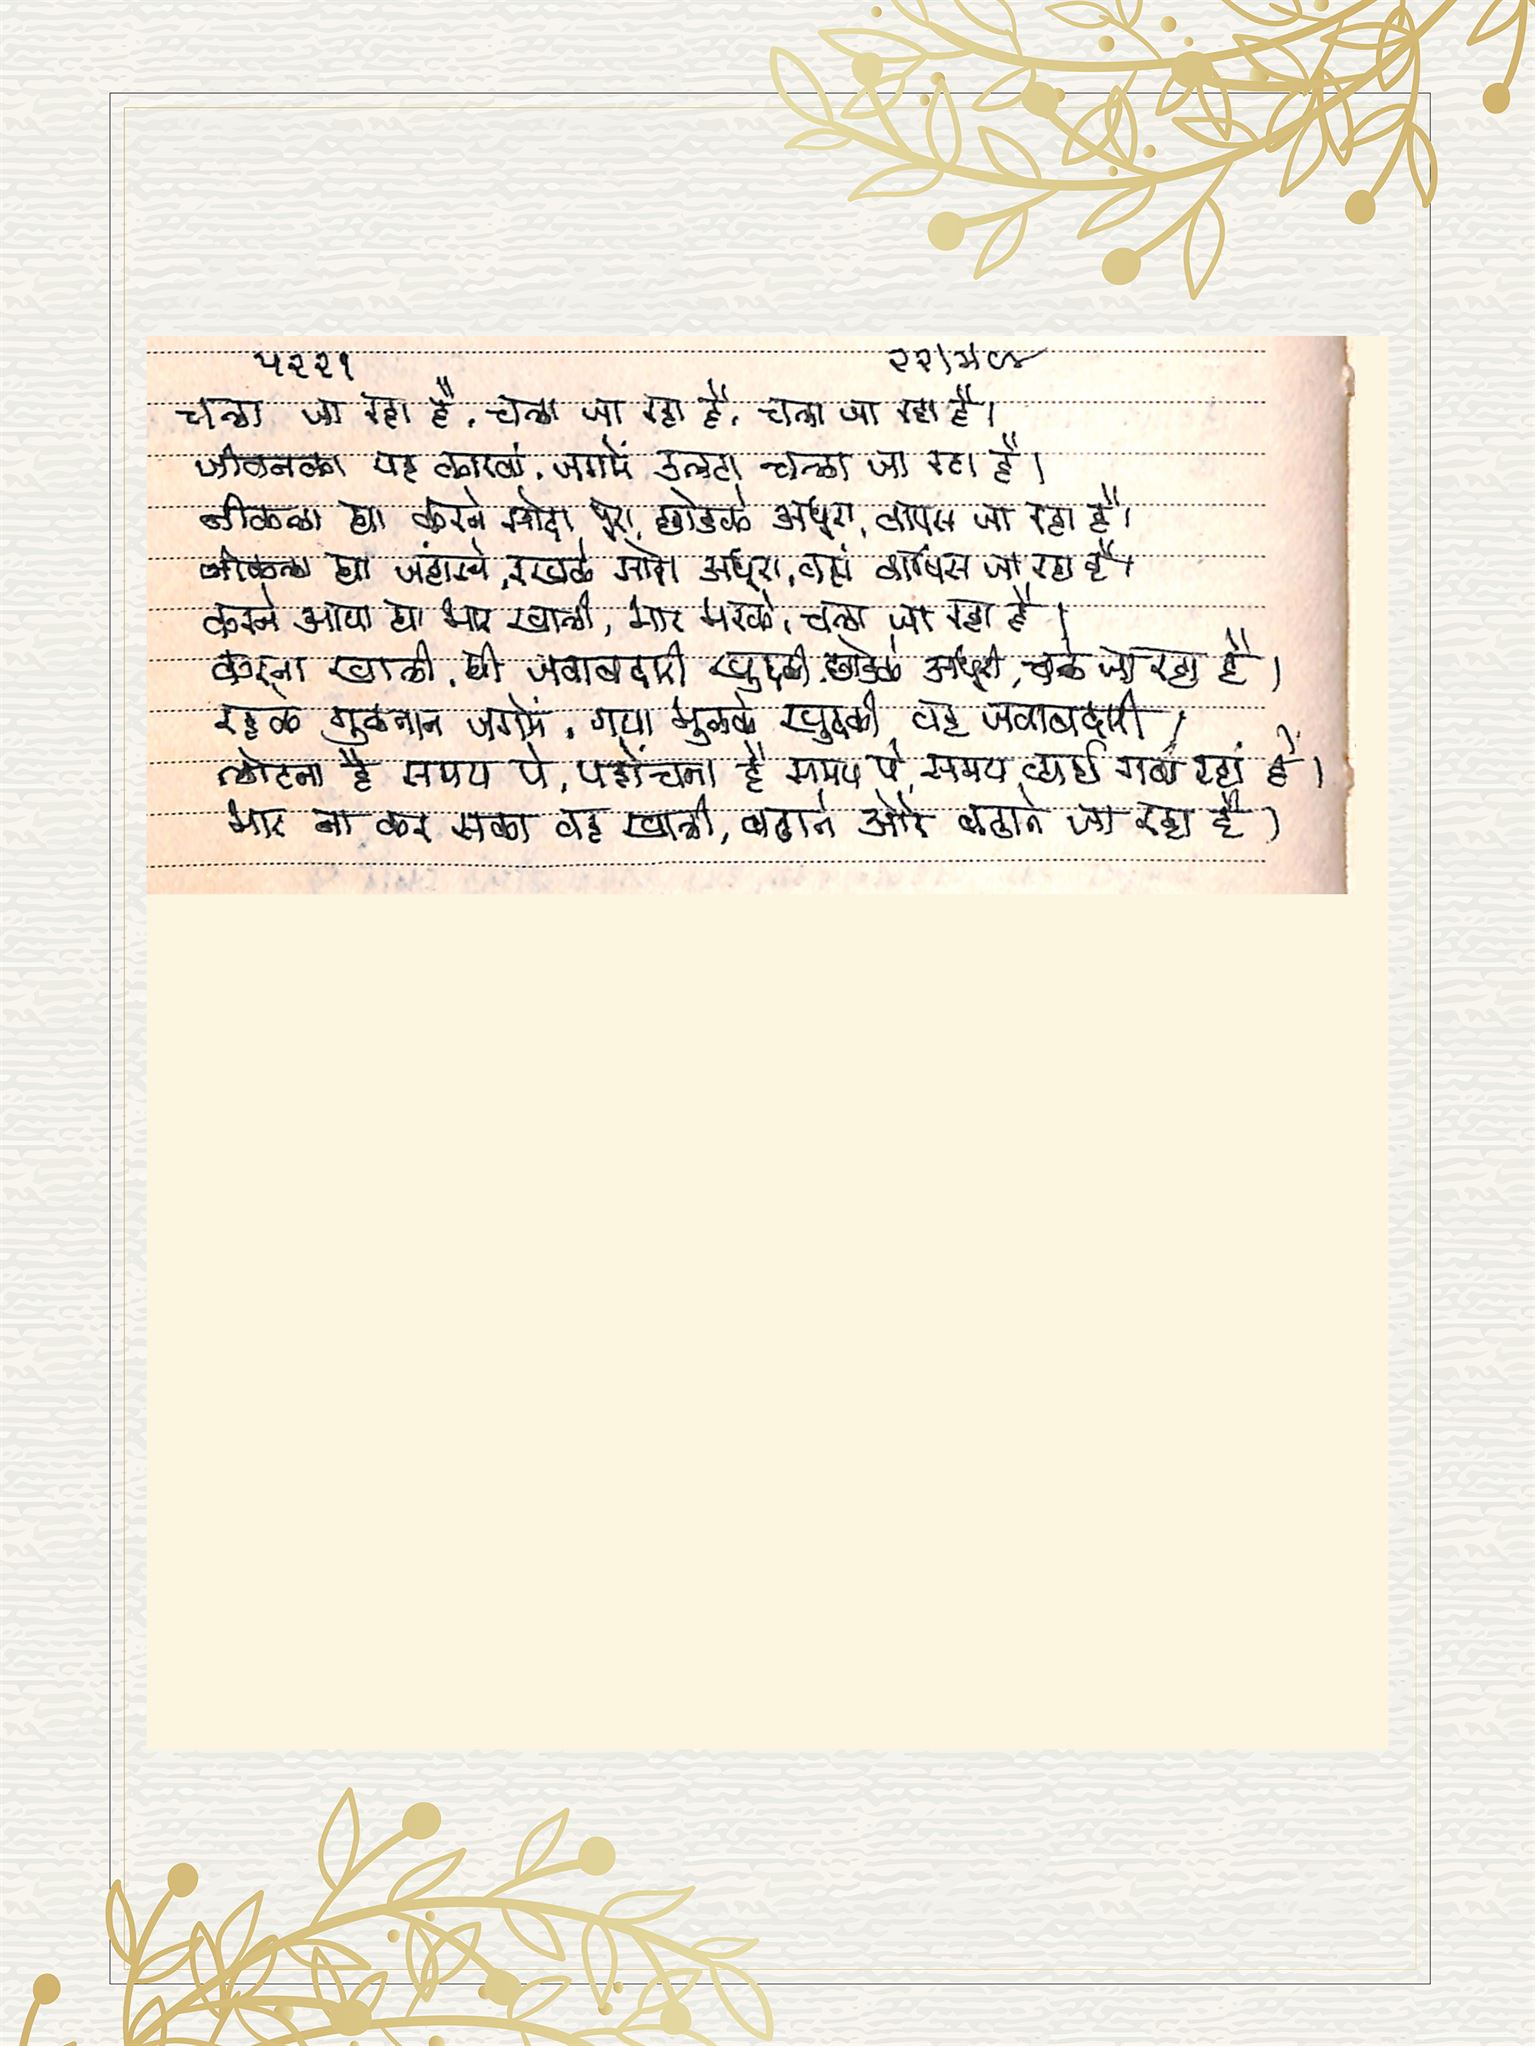 ५२२१
चला जा रहा है, चला जा रहा है, चला जा रहा है।
जीवनका यह कारवां, जगमें उलटा चला जा रहा है।
नीकला था करने सोदा पूरा, छोडके अधूरा, वापस जा रहा है।
नीकला था जहांसे, रखके सोदा अधूरा, वहां वापिस जा रहा है।
करने आया था भार खाली, भार भरके, चला जा रहा है।
करना खाली, थी जवाबदारी खुदकी, छोडके अधूरी, चले जा रहा है।
रहके गुलतान जगमें, गया भुलके खुदकी वह जवाबदारी।
लोटना है समय पे, पहोंचना है समय पे, समय व्यर्थ गवां रहां है।
भार ना कर सका वह खाली, बढाने और बढाने जा रहा है।